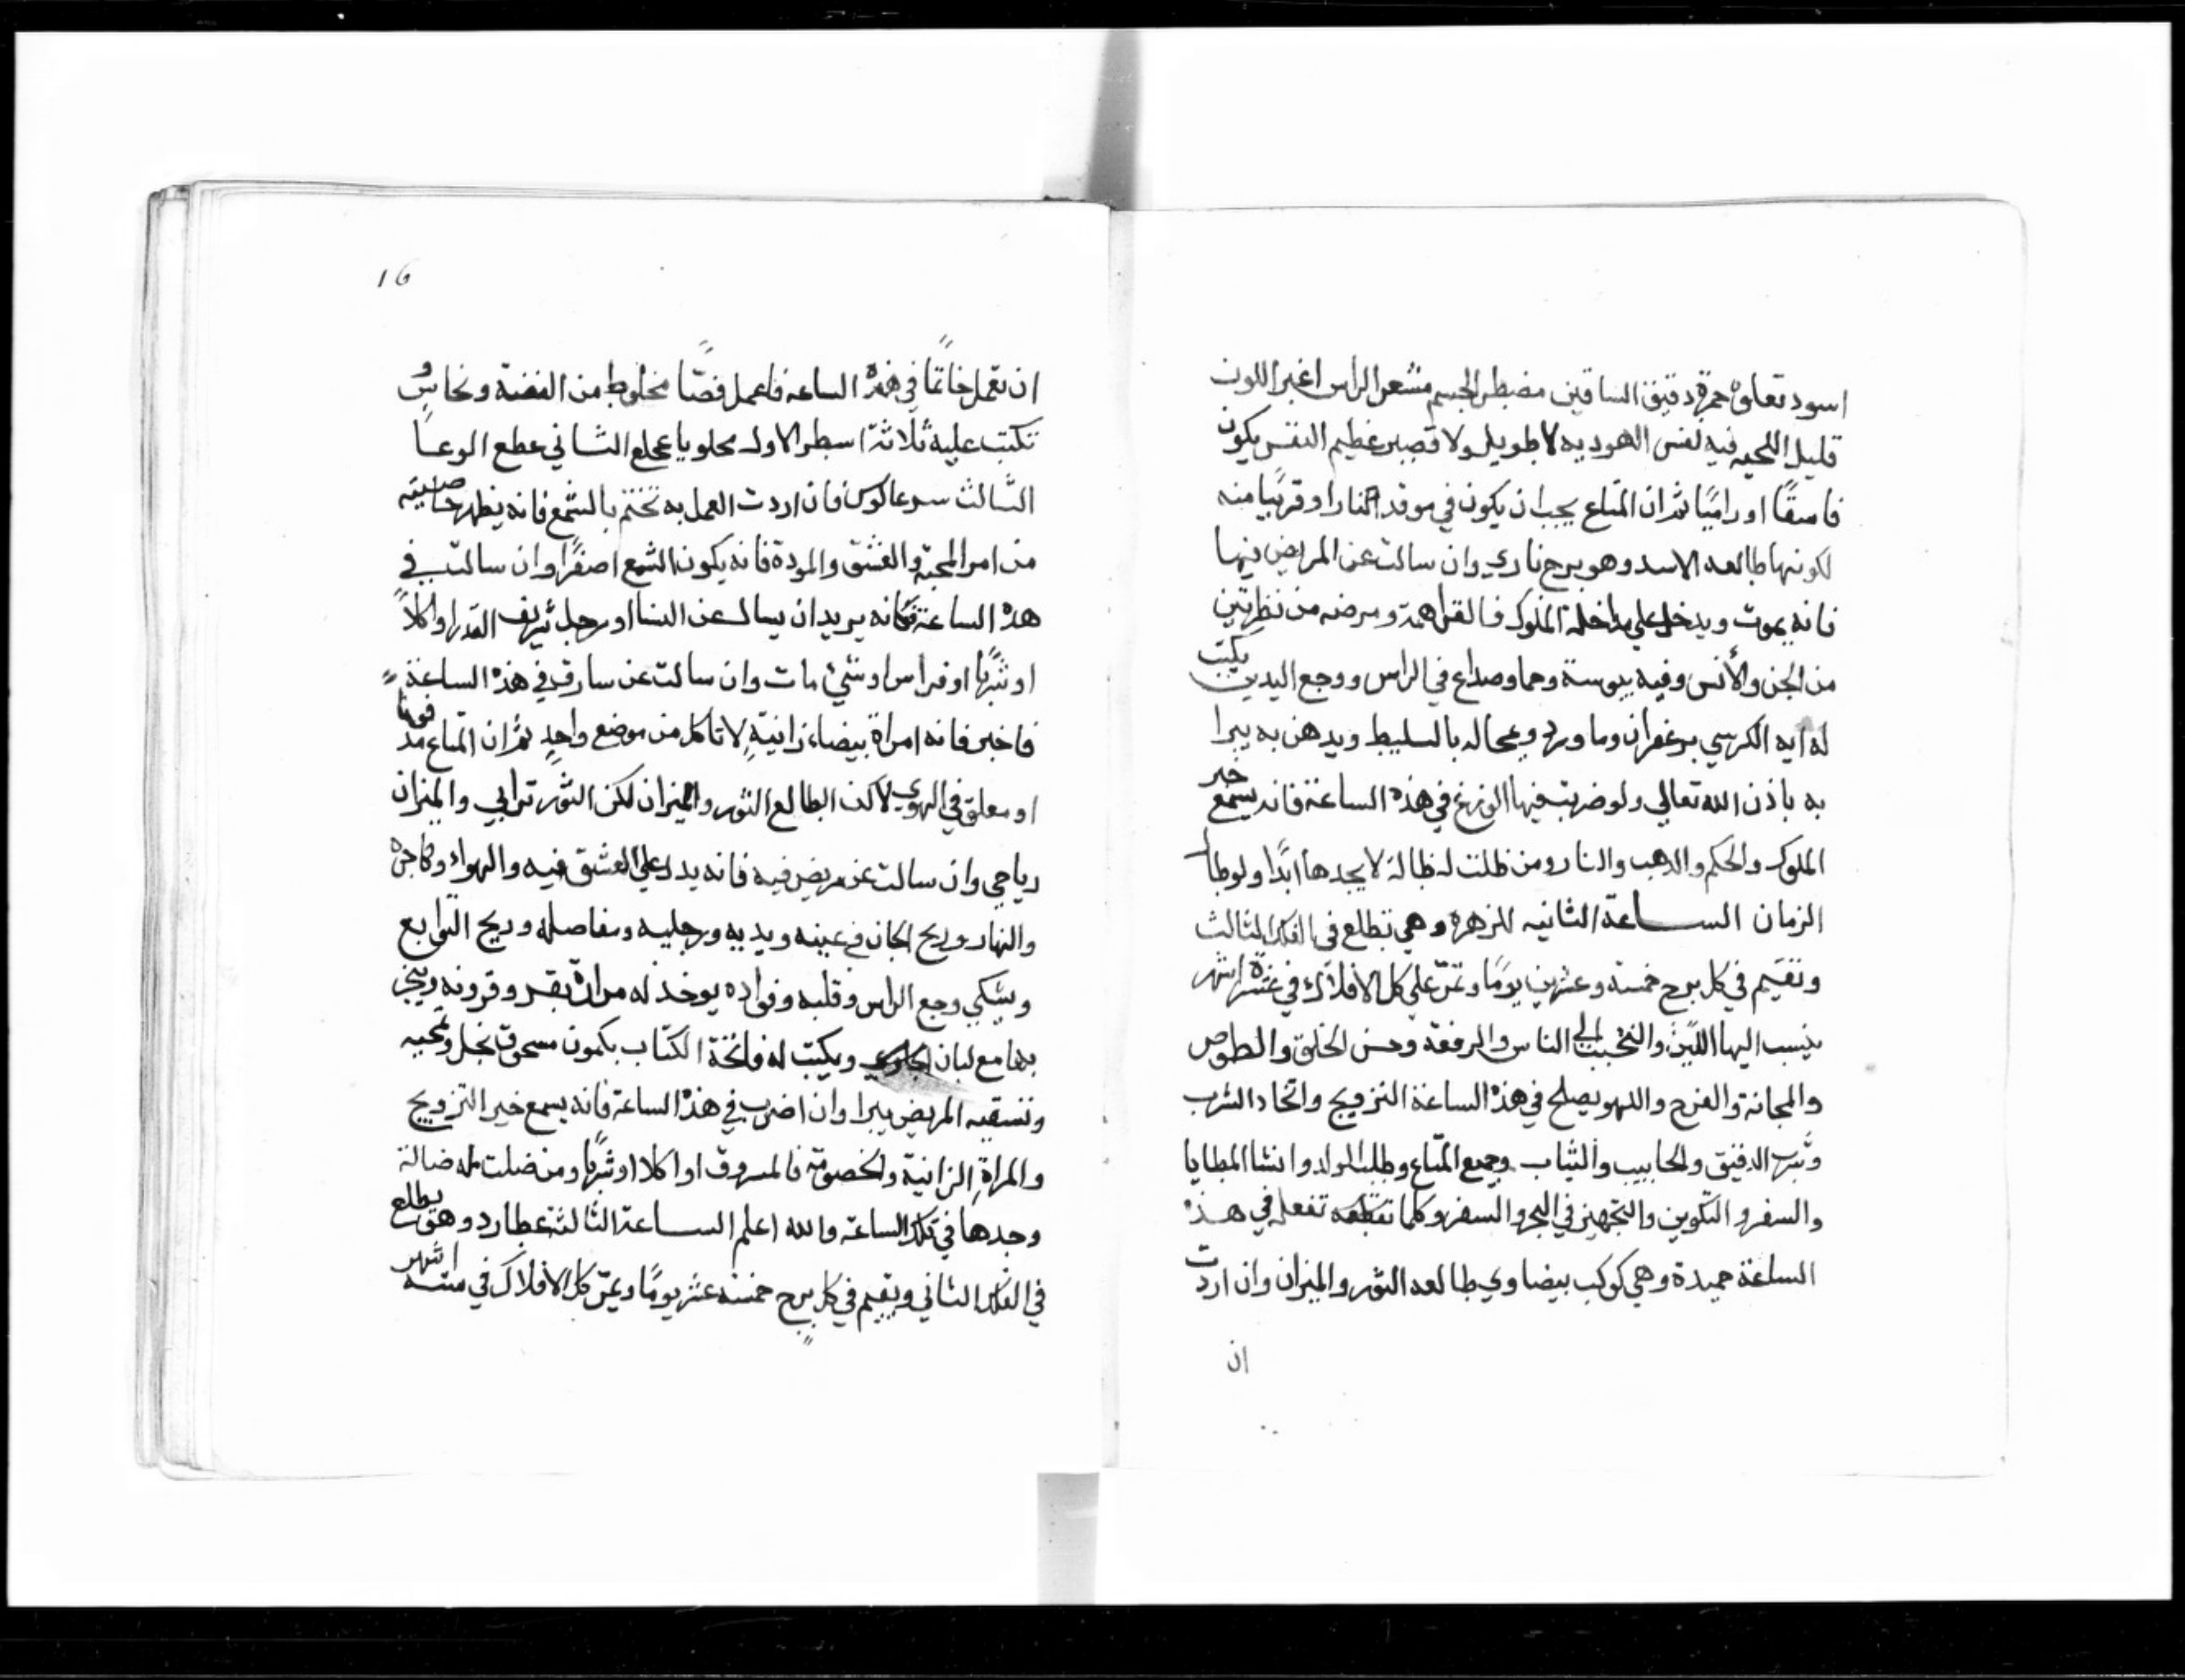 اسود تعلوه حمرة دقيق الساقين مضطر الجسم مشعر الراس اغبر اللون
قليل اللحيه فيه نفس الهوديه لا طويل ولا قصير عظيم النفس يكون
فاسقًا او راميًا ثم ان المتاع يجب ان يكون في موقد النار او قريبًا منه
لكونها طالعه الاسد وهو برج ناري وان سالت عن المريض فيها
فانه يموت ويدخل علي الملوك ومرضه من نظرتين
من الجن والأنس وفيه يبوسة وحما وصداع في الراس ووجع اليدين يكتب
له آيه الكرسي بزعفران وماورد ويمحا له بالسليط ويدهن به يبرا
به باذن الله تعالي ولو ضربت فيها في هذه الساعة فانه يسمع خبر
الملوك والحكم والذهب والنار ومن ظلت له ظالة لا يجدها ابدًا ولو طال
الزمان الساعة الثانيه للزهره وهي تطلع في الفلك الثالث
وتقيم في كل برج خمسة وعشرين يومًا وتمرّ علي كل الافلاك في عشرة اشهر
ينسب اليها اللين والتحبب الي الناس والرفعة وحسن الخلق
والمجانة والفرح واللهو يصلح في هذه الساعة التزويج واتخاد الشرب
وشرب الدقيق والثياب وجميع المتاع وطلب الولد وانشا المطايا
والسفر و التكوين والتجهيز في البحر والسفر وكلما تفعله في هذه
الساعة حميدة وهي كوكب بيضاوي طالعه الثور والميزان وان اردت
ان
16
ان تعمل خاتمًا في هذه الساعه فاعمل فصًّا مخلوط من الفضة ونحاسٍ و
تكتب عليه ثلاثة اسطر الاول الثاني
الثالث فان اردت العمل به تختم بالشمع فانه يظهر خاصيته
من امر المحبة والعشق والمودة فانه يكون الشمع اصفرًا وان سالت في
هذه الساعة فكانه يريد ان يسال عن النسا او رجل شريف القدر او اكلاً
او شربًا او فراس او شيْ مات وان سالت عن سارق في هذه الساعة
فاخبر فانه امراة بيضاء زانيةٍ لا تاكل من موضع واحدٍ ثم ان المتاع مدفونا
او معلق في الهوي لاكن الطالع الثور والميزان لكن الثور ترابي والميزان
رياحي وان سالت عن مريض فيه فانه يدل علي العشق فيه والهواء
والنهار وريح الجان في عينه ويديه ورجليه ومفاصله وريح التوابع
ويشكي وجع الراس وقلبه وفواده يوخذ له مرارة بقر وقرونه ويبخر
بها مع لبان الجاوي ويكتب له فاتحة الكتاب بكمون مسحوق بخل وتمحيه
وتسقيه المريض يبرا وان اضرب في هذه الساعة فانه يسمع خبر التزويج
والمراةِ الزانية والخصومة فالمسروق او اكلا او شربًا ومن ضلت له ضالة
وجدها في تلك الساعة والله اعلم الساعة الثالثة عطارد وهو يطلع
في الفلك الثاني ويقيم في كل برج خمسة عشر يومًا ويمرّ كل الافلاك في ستة اشهر